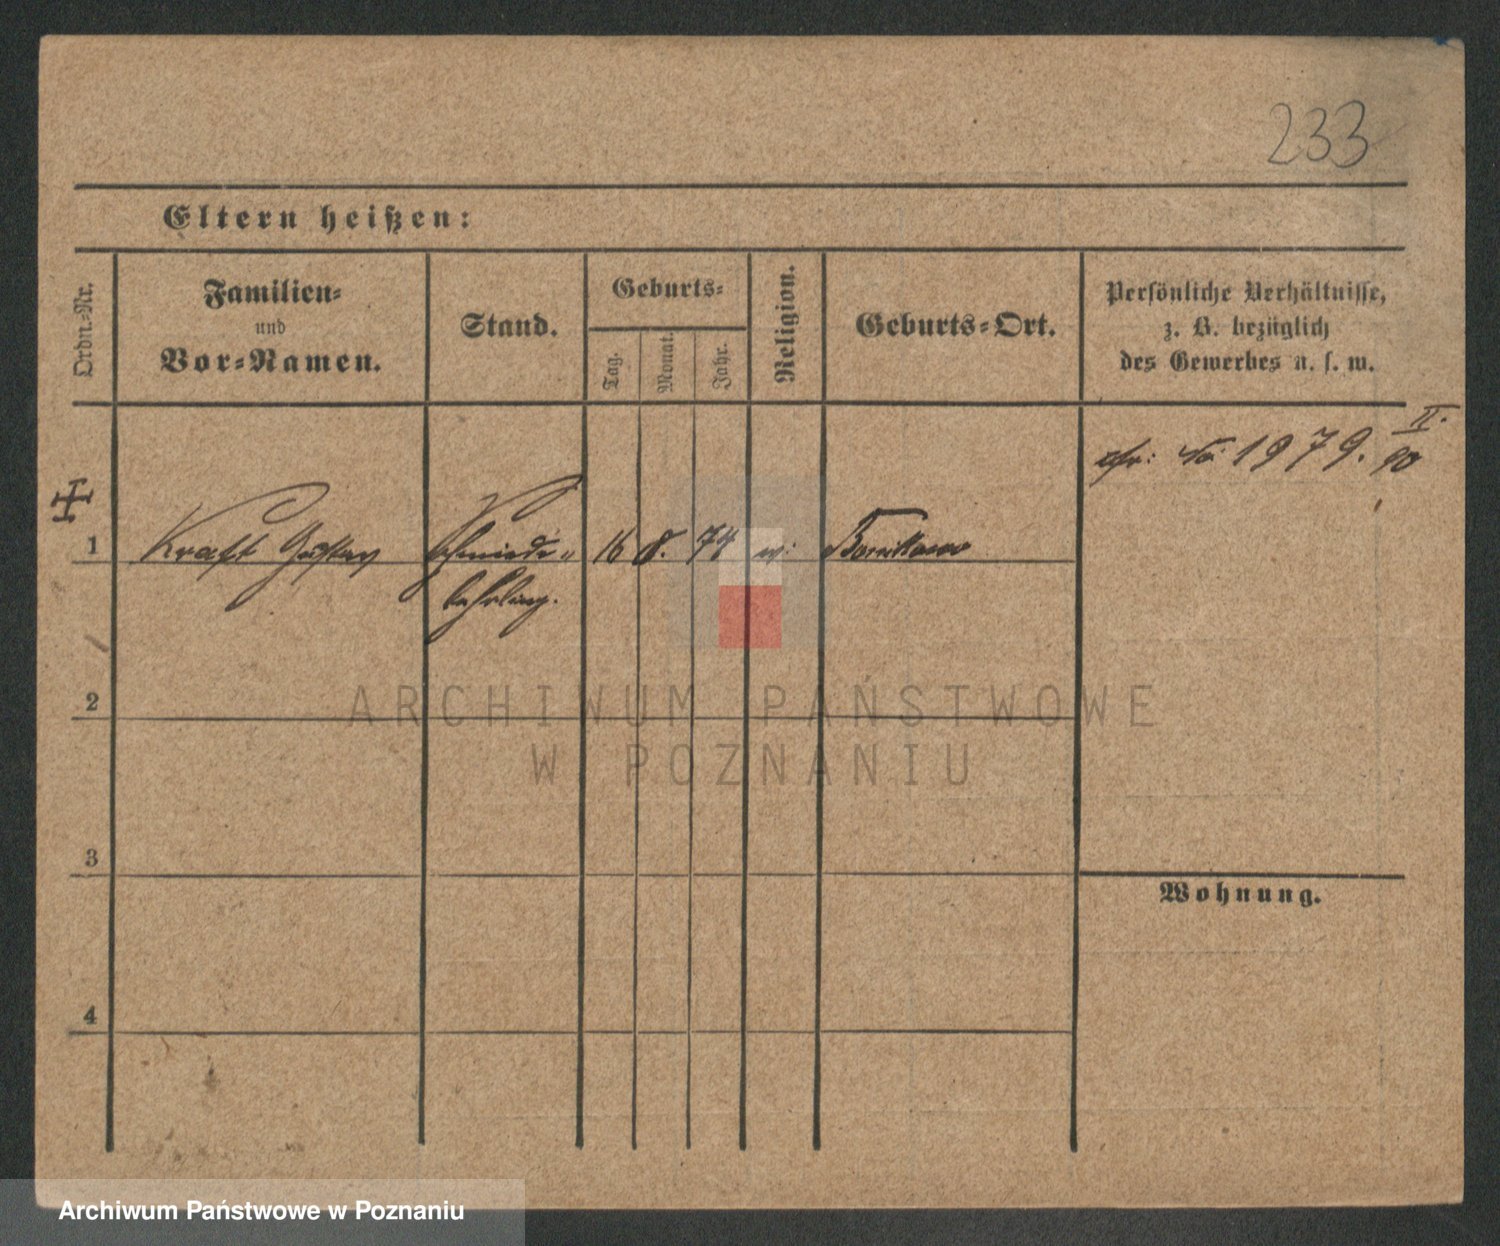 233
Eltern heißen:
Ordn.-Nr.
Familien-
und
Vor-Namen.
Stand.
Geburts-
Tag.
Monat.
Jahr.
Religion.
Geburts-Ort.
Persönliche Verhältnisse,
z. B. bezüglich
des Gewerbes u. s. w.
No 1979. II. 90
1 Kraft Gustav Schmiede- 16 8. 74
Lehrling.
2
3
4
Wohnung.
ARCHIWUM PAŃSTWOWE
W POZNANIU
Archiwum Państwowe w Poznaniu